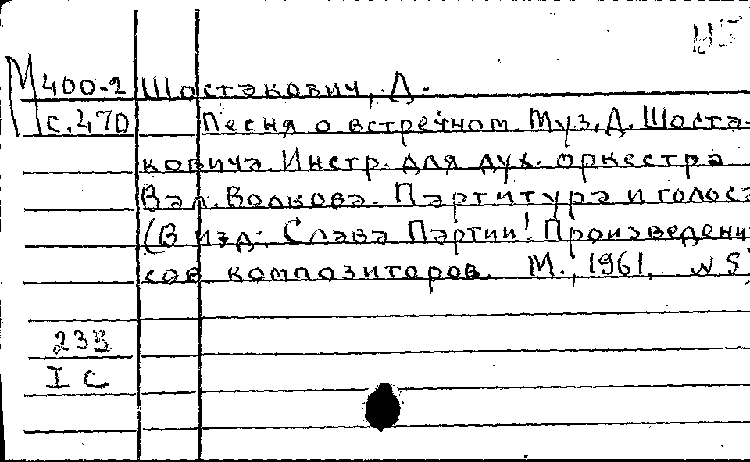 М 400-2 Шостакович, Д.
с. 470 Песня о встречном. Муз. Д. Шоста-
ковича. Инстр. для дух. оркестра
Вал. Волкова. Партитура и голоса
(В изд.: Слава Партии! Произведени
сов композиторов. М., 1961, № 5)
23В
I С